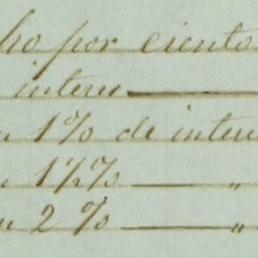 ho por ciento
interes
n 1% de intere
n 1½% "
n 2 % "